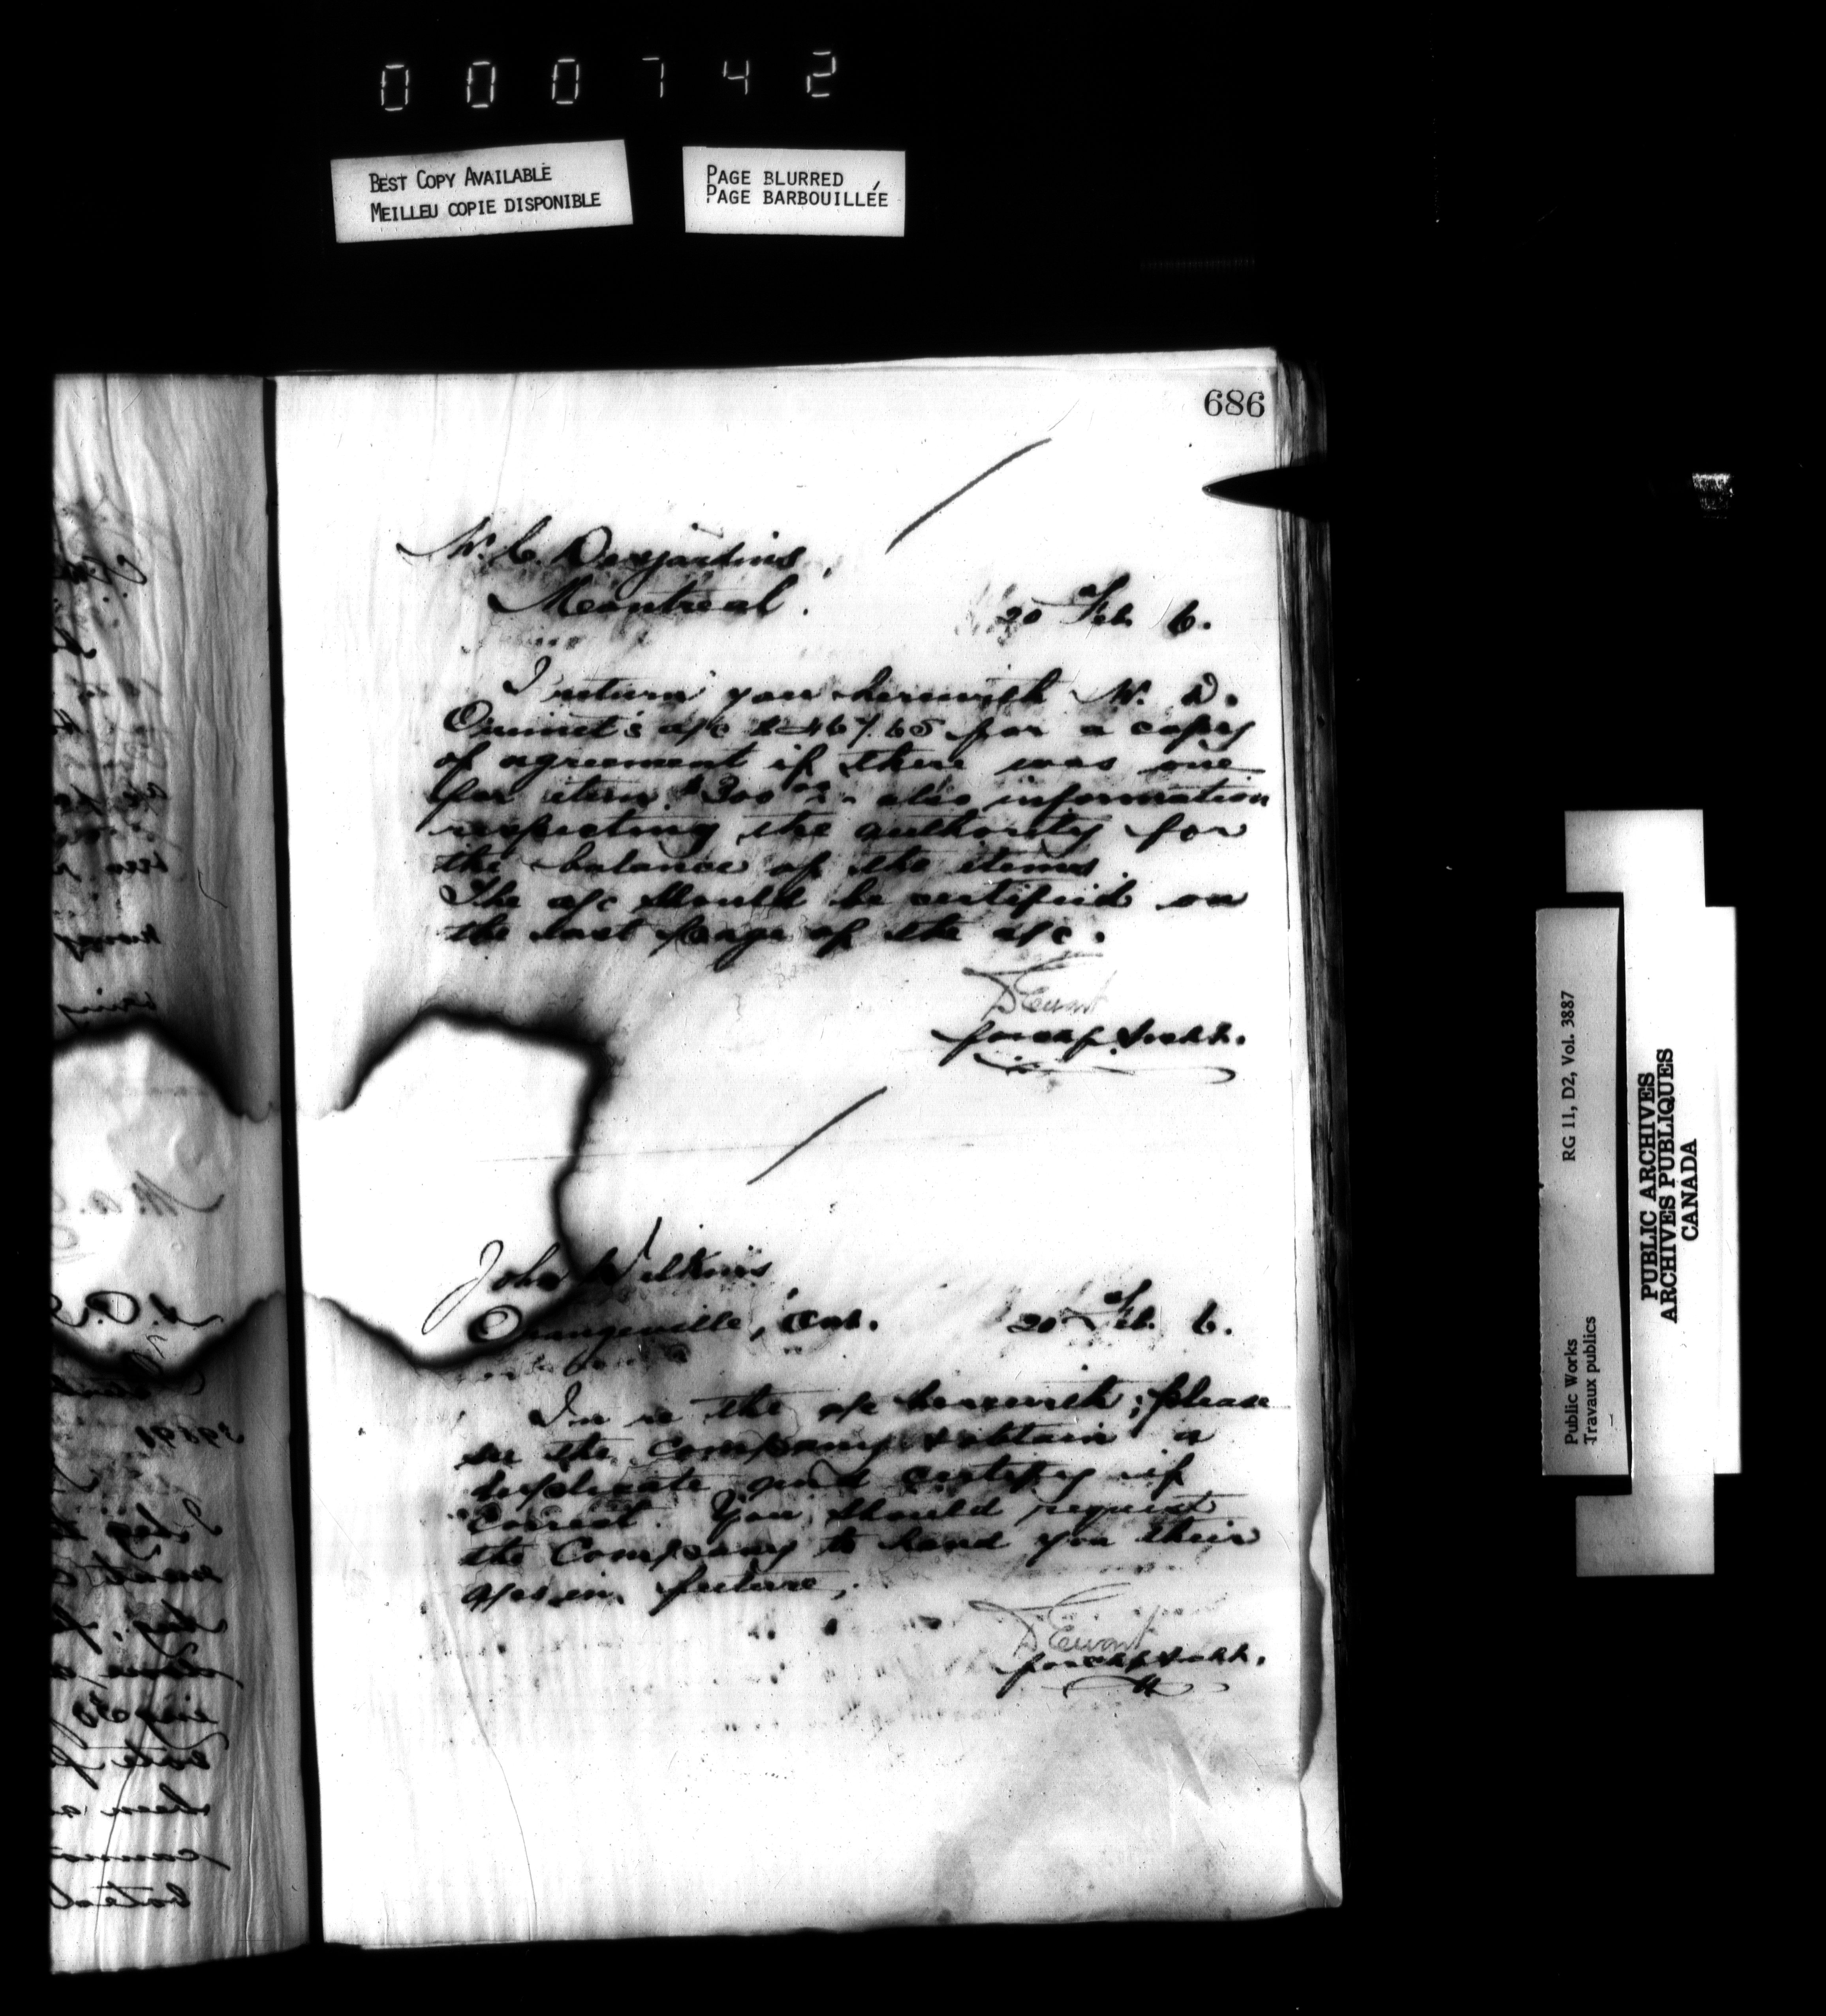 000742
BEST COPY AVAILABLE
MEILLEU COPIE DISPONIBLE
PAGE BLURRED
PAGE BARBOUILLÉE
686
W. C. Desjardins,
Montreal.
20 Feb. 6.
I return you herewith W. D.
Ouimet's a/c $467.65 for a copy
of agreement if there was one
for item $300 00 - also information
respecting the authority for
the balance of the items.
The a/c should be certified on
the last page of the a/c.
D Ewart
for chf. Archt.
John Wilkins
Orangeville, Ont.
20 Feb. 6.
In re the a/c herewith; please
see the Company & obtain a
duplicate and certify if
correct. You should request
the Company to hand you their
a/cs in future.
D Ewart
for chf Archt.
Public Works
Travaux publics
RG 11, D2, Vol. 3887
PUBLIC ARCHIVES
ARCHIVES PUBLIQUES
CANADA